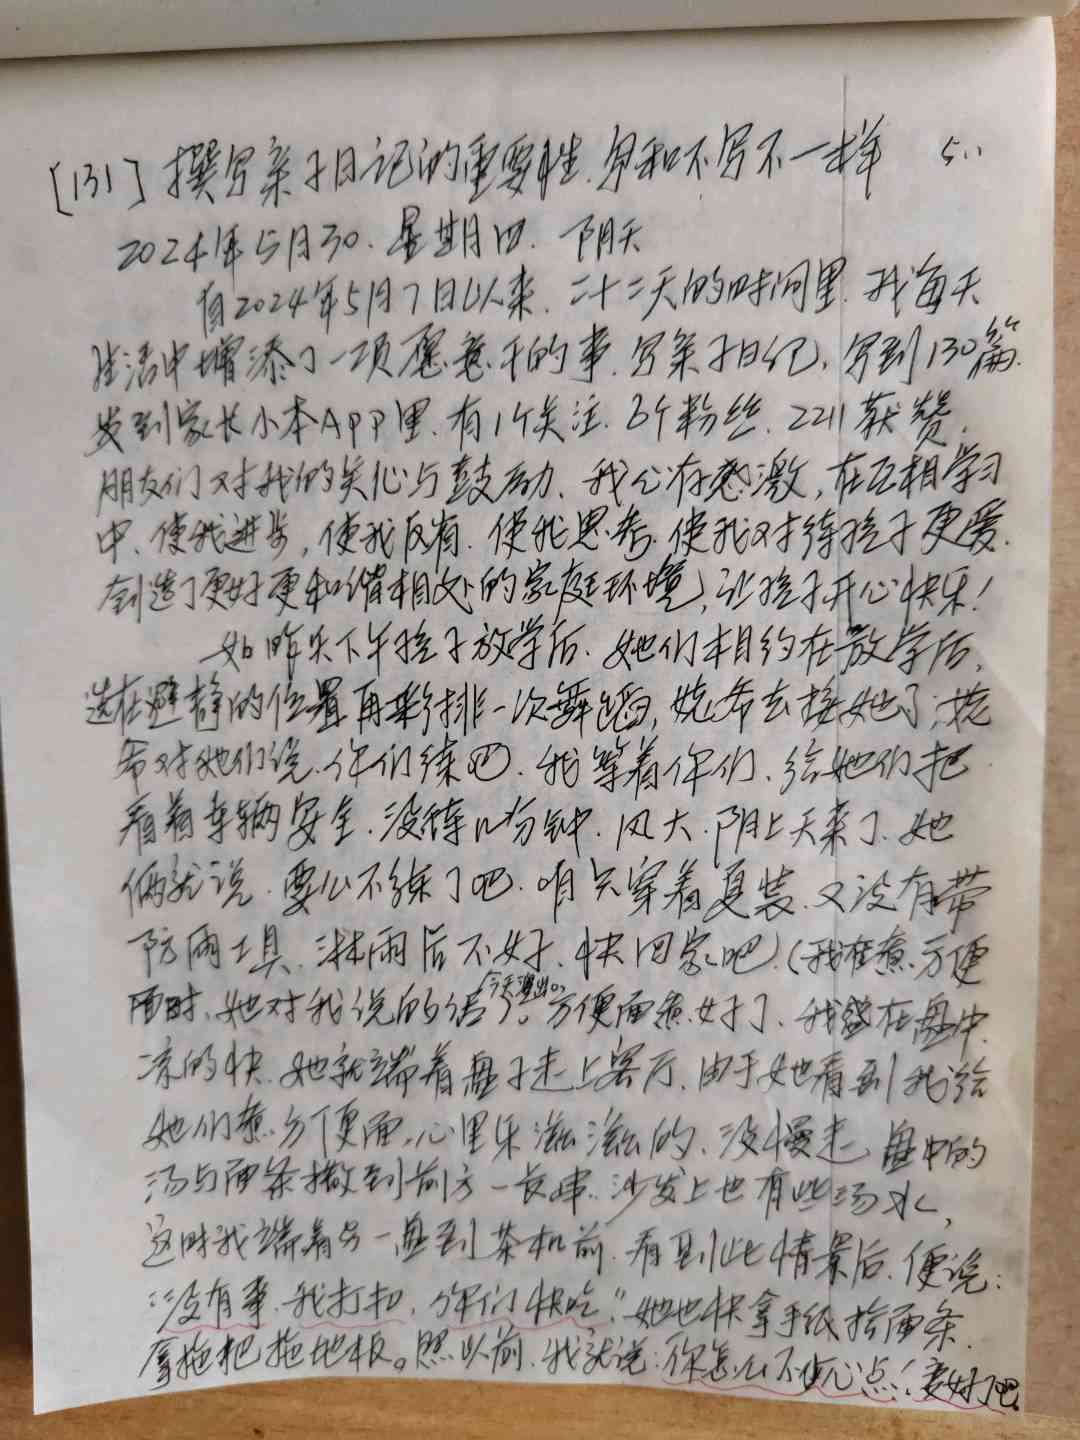 [131] 撰写亲子日记的重要性.写和不写不一样 5..
2024年5月30.星期四.阴天
自2024年5月7日以来.二十二天的时间里.我每天
生活中增添了一项愿意干的事.写亲子日记,写到130篇.
发到家长小本APP里.有1个关注.6个粉丝、2211获赞.
朋友们对我的关心与鼓励、我心存感激,在互相学习
中、使我进步,使我反省.使我思考.使我对待孩子更爱.
创造了更好更和谐相处的家庭环境,让孩子开心快乐!
如昨天下午孩子放学后.她们相约在放学后,
选在避静的位置再彩排一次舞蹈,晓希去接她了;晓
希对她们说.你们练吧.我等着你们、给她们把
看着车辆安全.没待几分钟.风大.阴上天来了.她
俩就说.要么不练了吧.咱只穿着夏装.又没有带
防雨工具.淋雨后不好.快回家吧.(我在煮方便
面时、她对我说的话)。方便面煮好了、我盛在盘中.
今天温出
凉的快.她就端着盘子走上客厅.由于她看到我给
她们煮方便面,心里乐滋滋的、没慢走.盘中的
汤与面条撒到前方一长串.沙发上也有些汤水,
这时我端着另一盘到茶机前.看到此情景后.便说:
"没有事.我打扫,你们快吃."她也快拿手纸拾面条.
拿拖把拖地板。照以前.我就说:你怎么不小心点!变好了吧.